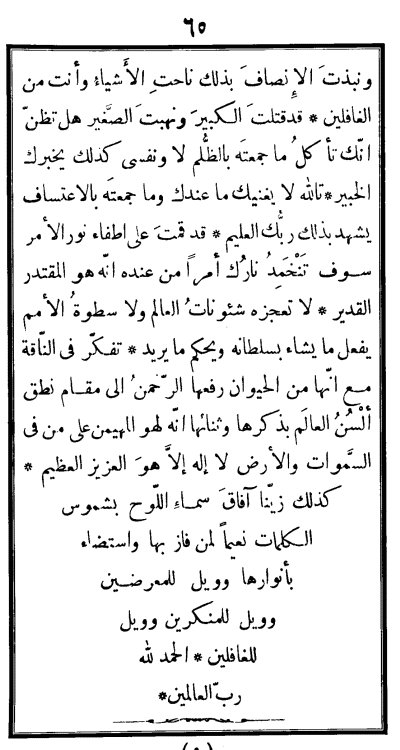 ٦٥
ونبذتَ الإنصافَ بذلك ناحت الأشياءُ وأنت من
الغافلين * قد قتلتَ الكبيرَ ونهبتَ الصَّغير هل تظنّ
انّك تأكلُ ما جمعتَه بالظُّلم لا ونفسى كذلك يخبرك
الخبير * تالله لا يغنيك ما عندك وما جمعتَه بالاعتساف
يشهد بذلك ربُّك العليم * قد قمتَ على اطفاء نور الأمر
سوف تَنْخَمِدُ نارُك أمراً من عنده انّه هو المقتدر
القدير * لا تعجزه شئوناتُ العالم ولا سطوةُ الأمم
يفعل ما يشاء بسلطانه ويحكم ما يريد * تفكّر فى النّاقة
مع انّها من الحيوان رفعها الرّحمنُ الى مقام نطق
ألْسُنُ العالَم بذكرها وثنائها انّه لهو المهيمن على من فى
السَّموات والأرض لا إله إلاَّ هوَ العزيز العظيم *
كذلك زيّنّا آفاقَ سماءِ اللّوح بشموس
الكلمات نعيماً لمن فاز بها واستضاء
بأنوارها وويل للمعرضين
وويل للمنكرين وويل
للغافلين * الحمد لله
ربّ العالمين *